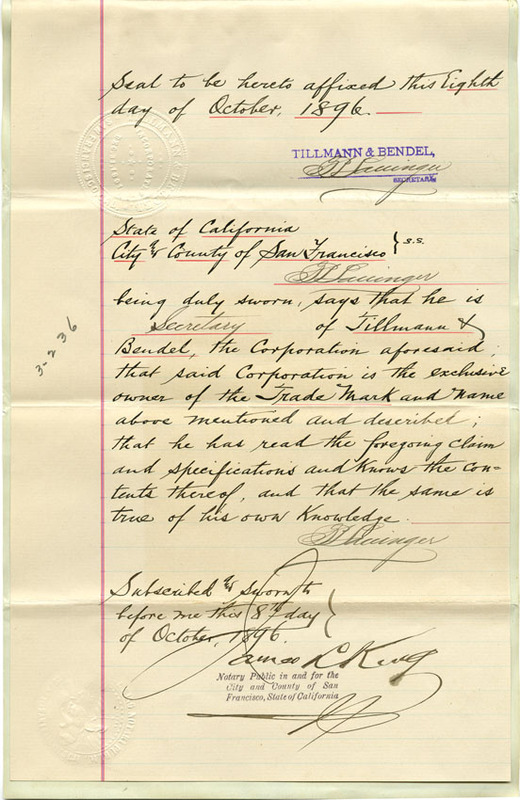 Seal to be hereto affixed this Eighth
day of October, 1896.
TILLMANN & BENDEL,
SECRETARY
State of California
City & County of San Francisco } s.s.
being duly sworn, says that he is
Secretary of Tillmann &
Bendel, the Corporation aforesaid;
that said Corporation is the exclusive
owner of the Trade Mark and Name
above mentioned and described;
that he has read the foregoing claim
and specifications and knows the con-
tents thereof, and that the same is
true of his own Knowledge.
Subscribed & Sworn to
before me this 8th day
of October, 1896.
James L King
Notary Public in and for the
City and County of San
Francisco, State of California
3-236